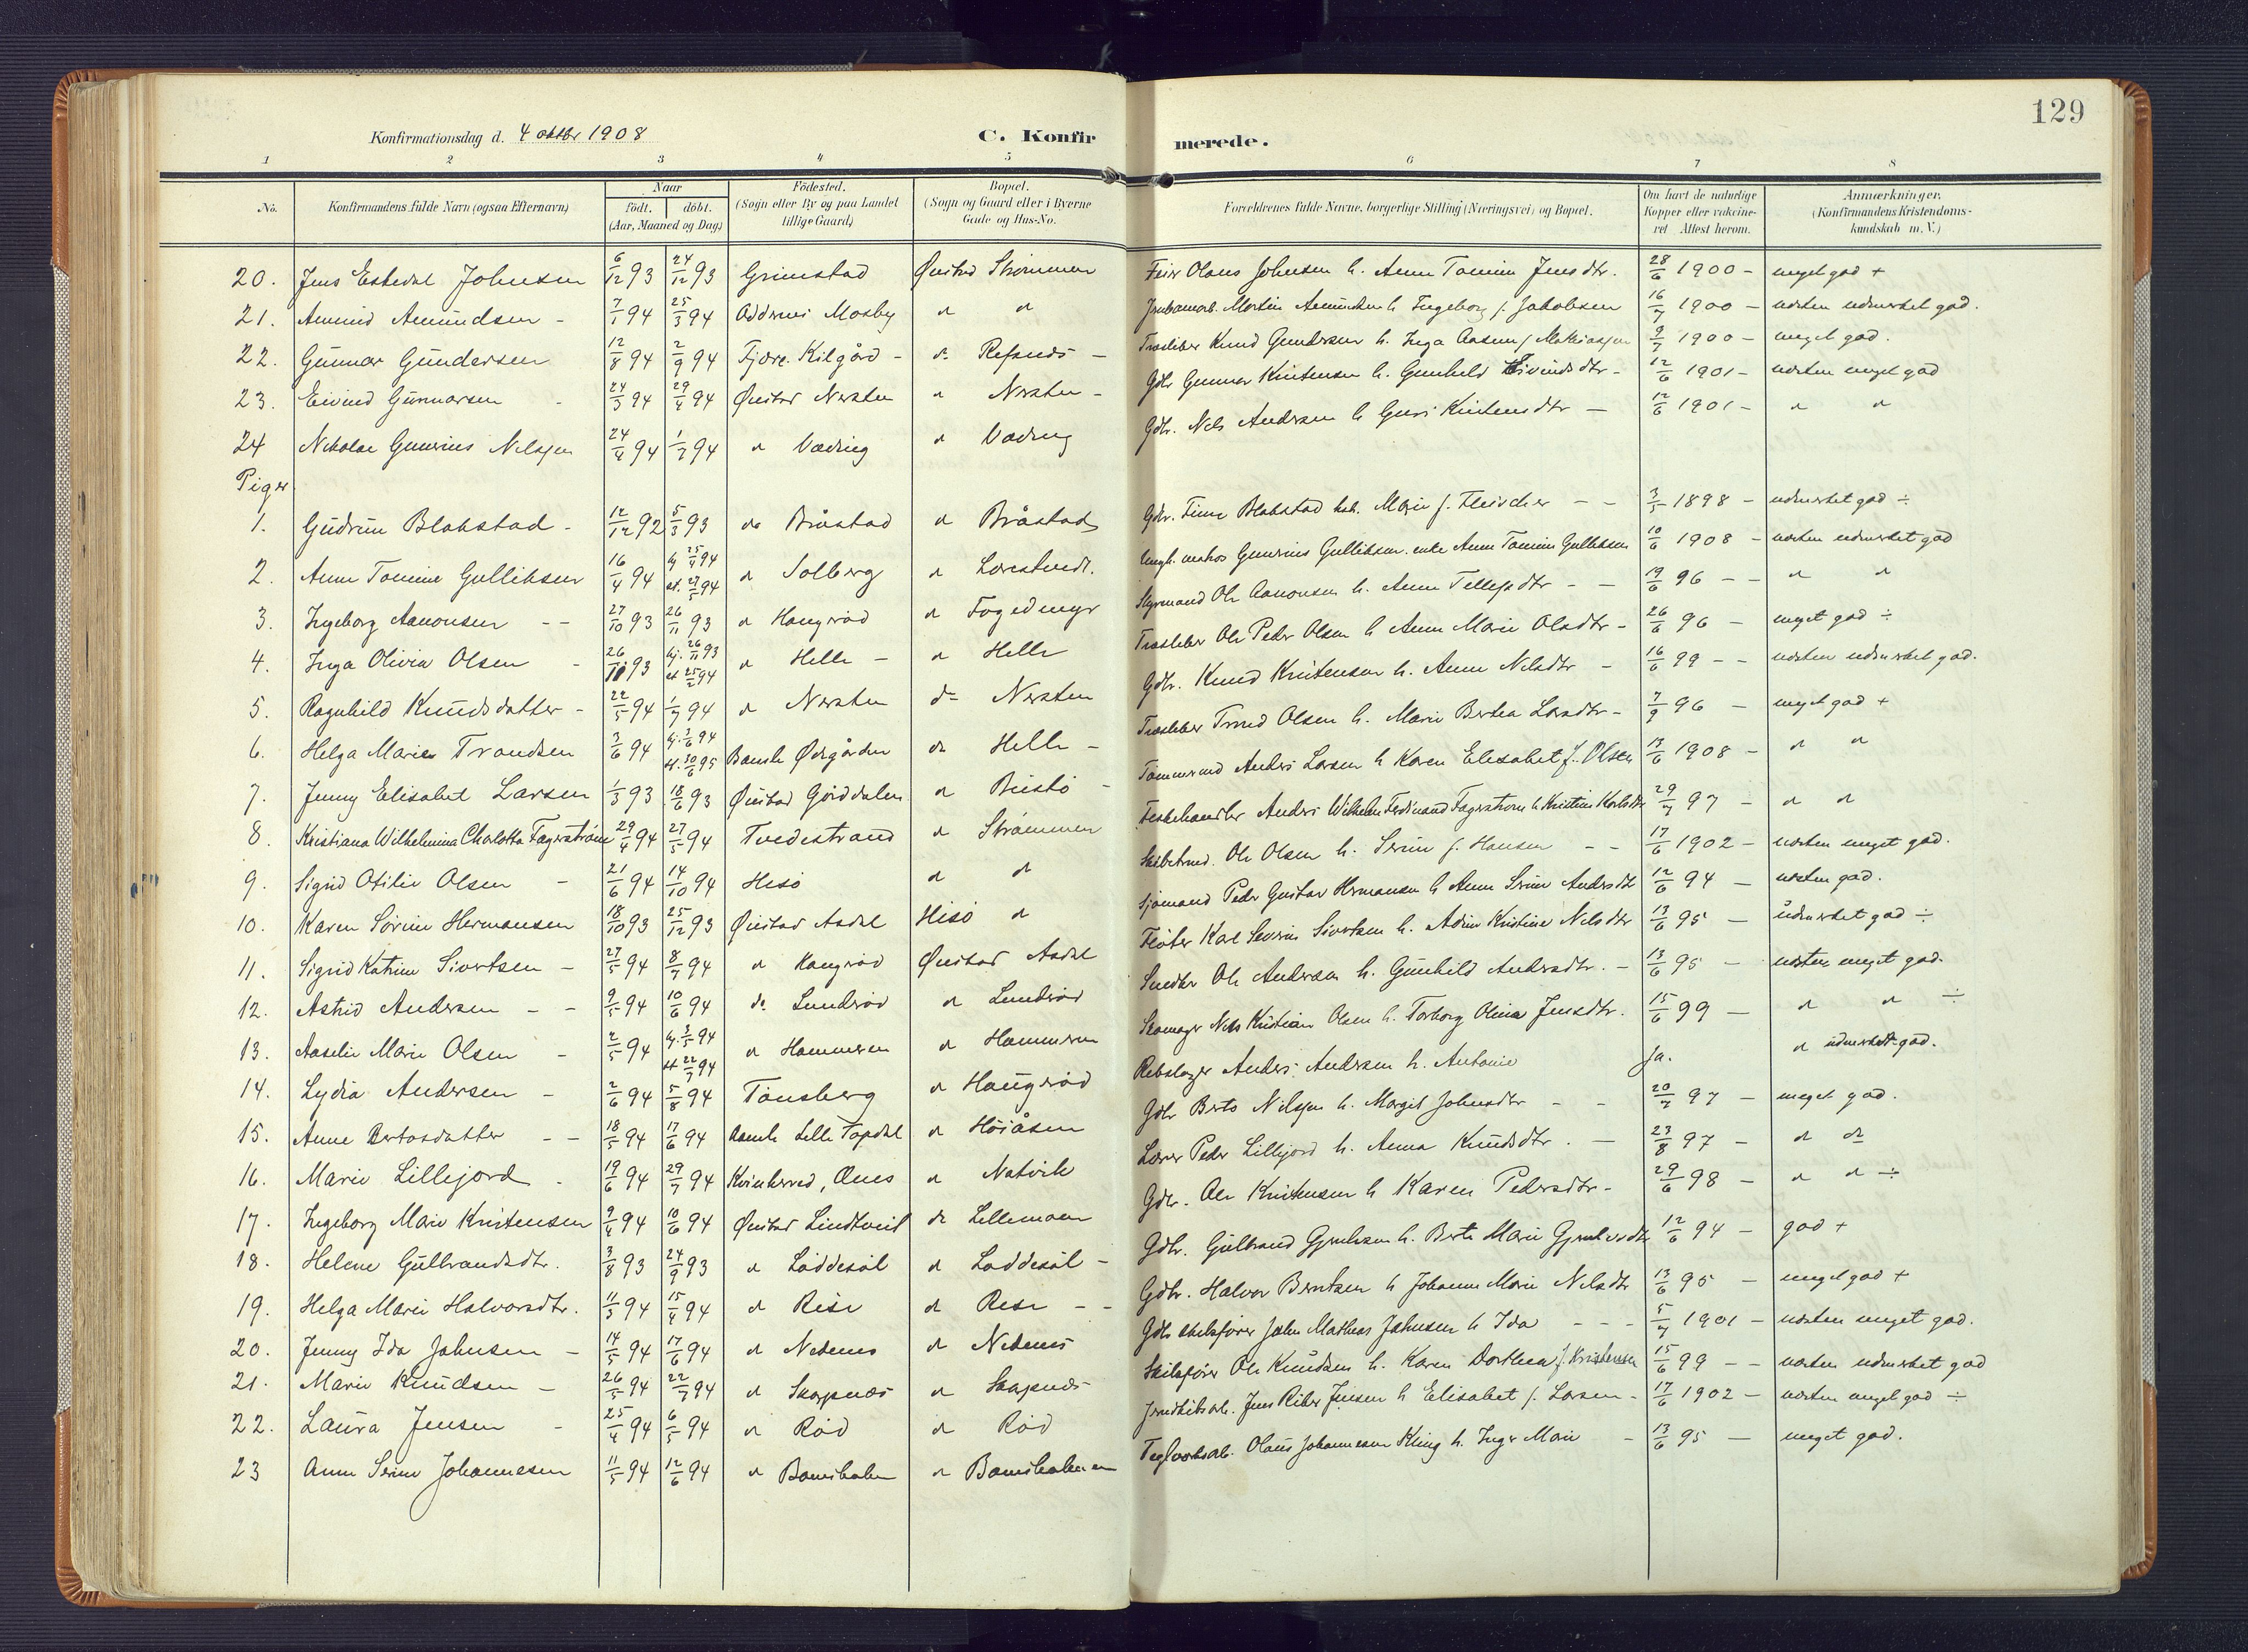 129
Konfirmationsdag d. 4 oktbr 1908 C. Konfirmerede.
1 2 3 4 5 6 7 8
No. Konfirmandens fulde Navn (ogsaa Efternavn) Naar født. døbt. (Aar, Maaned og Dag) Födested. (Sogn eller By og paa Landet tillige Gaard) Bopæl. (Sogn og Gaard eller i Byerne Gade og Hus-No. Forældrenes fulde Navne, borgerlige Stilling (Næringsvei) og Bopæl. Om havt de naturlige Kopper eller vakcineret Attest herom. Anmærkninger. (Konfirmandens Kristendomskundskab m. V.)
20. Jens Johnsen 6/12 93 24/12 93 Grimstad Øiestad Strømmen Feier Olaus Johnsen h. Anne Tomine Jensdtr. 28/6 1900 - meget god +
21. Amund Amundsen - 7/1 94 25/3 94 Oddernes Mosby " " Martin Amundsen h. Ingeborg f. Jakobsen 16/7 1900 - næsten udmerket god.
22. Gunnar Gundersen 12/8 94 2/9 94 Fjære. Kilgård - do Refsnes - Knud Gundersen h. Inga Aasene f. Mathiassen 9/7 1900 - meget god.
23. Eivind Gunnarsen 24/3 94 29/4 94 Øiestad Nersten " Nersten - Gdbr Gunnar Kristensen h. Gunhild Eivindsdtr - 12/6 1901 - næsten meget god
24 Nikolai Gunerius Nilssen 24/4 94 1/7 94 " Vædring " Vædring Gdbr. Nils Andersen h. Guri Kristensdtr - 12/6 1901 - " "
Piger
1. Gudrun Blakstad - 12/12 92 5/3 93 do Bråstad " Bråstad Gdbr. Finn Blakstad h. Marie f. Fleischer - - 3/5 1898 - udmerket god ÷
2. Anne Tomine Gulliksen 16/4 94 hj 25/4 94 st. 27/5 94 " Solberg " Gunerius Gulliksen. enke Anne Tomine Gulliksen 10/6 1908 - næsten udmerket god
3. Ingeborg Aanonsen - - 27/10 93 26/11 93 " Haugerød " Fogedmyr Styrmand Ole Aanonsen h. Anne Tellefsdtr - - 19/6 96 - - " "
4. Inga Olivia Olsen - 26/10 93 hj. 26/11 93 st 25/2 94 " Helle - " Helle Ole Peder Olsen h. Anne Marie Olsdtr - 26/6 96 - meget god ÷
5. Ragnhild Knudsdatter - 22/5 94 1/7 94 " Nersten do Nersten Gdbr. Knud Kristensen h. Anne Nilsdtr - 16/6 99 - - næsten udmerket god.
6. Helga Marie Trondsen 3/6 94 hj. 3/6 94 st. 30/6 95 Bamle Ødegården do Helle - Trond Olsen h. Marie Bertea Larsdtr - 7/9 96 - meget god +
7. Jenny Elisabet Larsen 1/3 93 18/6 93 Øiestad Gjorddalen " Bustø - Tømmermand Anders Larsen h Karen Elisabet f. Olsen 13/6 1908 - " "
8. Kristiana Wilhelmina Charlotta Fagerstrøm 29/4 94 27/5 94 Tvedestrand " Strømmen Fiskehandler Anders Wilhelm Ferdinand Fagerstrøm h. Kristine Karlsdtr 29/7 97 - " "
9. Sigrid Otilie Olsen - 21/6 94 14/10 94 Hisø " " Ole Olsen h. Serine f. Hansen - - 17/6 1902 - næsten meget god.
10. Karen Sørine Hermansen 18/10 93 25/12 93 Øiestad Asdal Hisø " Sjømand Peder Gustav Hermansen h. Anne Serine Andersdtr 12/6 94 - næsten god.
11. Sigrid Katrine Sivertsen - 27/5 94 8/7 94 " Haugerød Øiestad Asdal Fløter Karl Severin Sivertsen h. Adine Kristine Nilsdtr 13/6 95 - udmerket god ÷
12. Astrid Andersen - - 9/5 94 10/6 94 do Lunderød " Lunderød Snedker Ole Andersen h. Gunhild Andersdtr. - 13/6 95 - næsten meget god.
13. Aaselie Marie Olsen - 2/5 94 hj. 3/5 94 st 22/7 94 " Hammeren " Hammeren Skomager Nils Kristian Olsen h. Torborg Olivia Jensdtr. 15/6 99 - " " ÷
14. Lydia Andersen - 2/6 94 5/8 94 Tønsberg " Haugerød Rebslager Anders Andersen h. Antonie Ja. " udmerket god.
15. Anne Bertosdatter - - 18/5 94 17/6 94 Lille Topdal " Høiåsen Gdbr Berto Nilsen h. Margit Johnsdtr - - 20/7 97 - meget god.
16. Marie Lillejord - 19/6 94 29/7 94 Kvinherred, Ænes " Natvik Lærer Peder Lillejord h. Anna Knudsdtr. - 23/8 97 - " do
17. Ingeborg Marie Kristensen 9/4 94 10/6 94 Øiestad Lindtveit do Lillemoen Gdbr. Ole Kristensen h Karen Pedersdtr - 29/6 98 - " " ÷
18. Helene Gulbrandsdtr. 3/8 93 24/9 93 " Løddesøl " Løddesøl - Gdbr. Gulbrand h. Berte Marie 12/6 94 - god +
19. Helga Marie Halvorsdtr. 11/3 94 15/4 94 " Rise " Rise - - Gdbr. Halvor Berntsen h Johanne Marie Nilsdtr 13/6 95 - meget god +
20. Jenny Ida Johnsen - 14/5 94 17/6 94 " Nedenes " Nedenes Gdbr skibsfører John Mathias Johnsen h Ida - - - 5/7 1901 - næsten meget god.
21. Marie Knudsen - 26/5 94 22/7 94 " Skopnes " Skopnes Skibsfører Ole Knudsen h. Karen Dorthea f. Kristensen 15/6 99 - - næsten udmerket god
22. Laura Jensen - 25/4 94 6/5 94 " Rød " Rød Jens Riber Jensen h Elisabet f. Larsen - 17/6 1902 - næsten meget god ÷
23 Anne Serine Johannesen 11/5 94 12/6 94 " " Teglverksarb. Olaus Johannesen Kling h. Inger Marie - 13/6 95 - meget god.